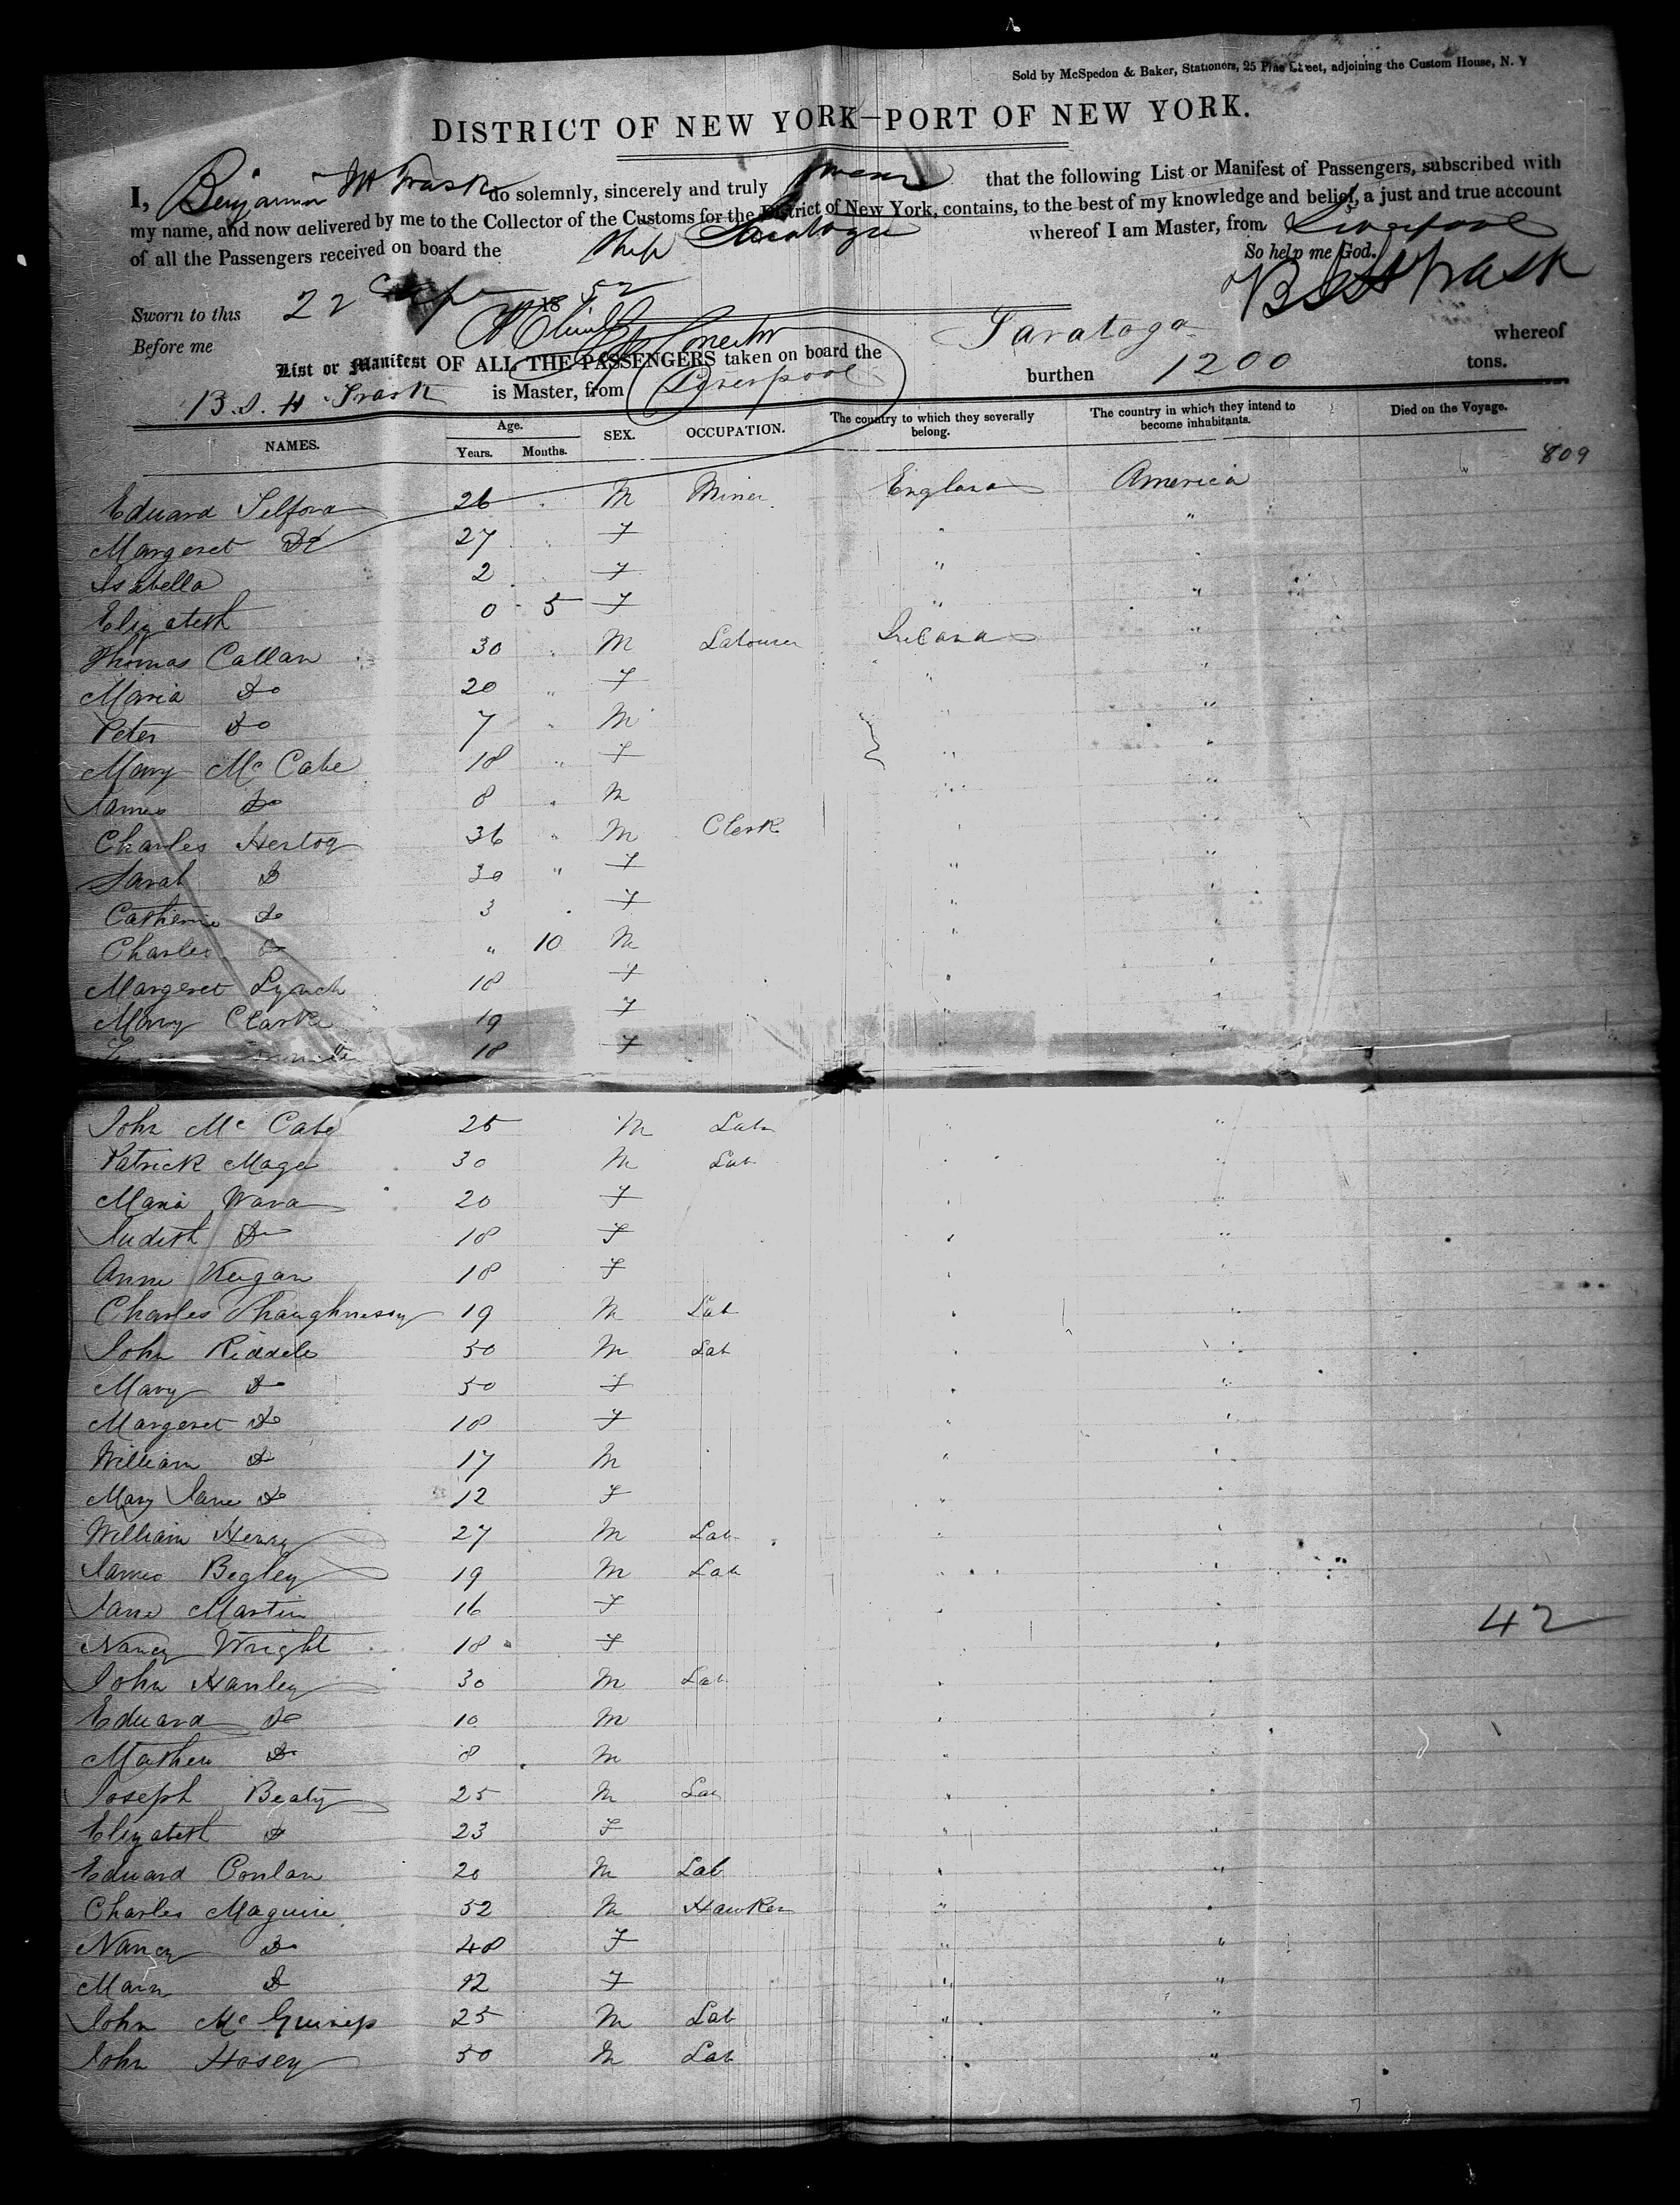 Sold by McSpedon & Baker, Stationers, 25 Pine Street, adjoining the Custom House, N. Y
DISTRICT OF NEW YORK—PORT OF NEW YORK.
I, Benjamin Trask do solemnly, sincerely and truly swear that the following List or Manifest of Passengers, subscribed with
my name, and now delivered by me to the Collector of the Customs for the District of New York, contains, to the best of my knowledge and belief, a just and true account
of all the Passengers received on board the Ship Saratoga whereof I am Master, from Liverpool
So help me God.
Sworn to this 22 1852
Before me
List or Manifest OF ALL THE PASSENGERS taken on board the Saratoga whereof
B. S. H. Trask is Master, from Liverpool burthen 1200 tons.
NAMES. Age. Years. Months. SEX. OCCUPATION. The country to which they severally belong. The country in which they intend to become inhabitants. Died on the Voyage.
809
Edward Telford 26 M Miner England America
Margeret Do 27 F " "
Isabella 2 F "
Elizabeth 0 5 F " "
Thomas Callan 30 M Labourer Ireland "
Maria Do 20 " F " "
Peter Do 7 M " "
Mary McCabe 18 " F " "
James Do 8 M " "
Charles Hertog 36 " M Clerk "
Sarah Do 30 " F " "
Catherine Do 3 F " "
Charles Do " 10 M " "
Margeret Lynch 18 F " "
Mary Clarke 19 F "
18 F
John McCabe 25 M Lab "
Patrick Mage 30 M Lab " "
Maria Ward 20 F " "
Judith Do 18 F " "
Anne Keigan 18 F " "
Charles Shaughnessy 19 M Lab " "
John Riddele 50 M Lab " "
Mary Do 50 F " "
Margeret Do 18 F " "
William Do 17 M " "
Mary Jane Do 12 F " "
William Henry 27 M Lab " "
James Begley 19 M Lab " "
Jane Martin 16 F " "
42
Nancy Wright 18 F "
John Hanley 30 M Lab " "
Edward Do 10 M " "
Mathew Do 8 M " "
Joseph Beaty 25 M Lab " "
Elizabeth Do 23 F " "
Edward Conlan 20 M Lab " "
Charles Maguire 52 M Hawker " "
Nancy Do 48 F " "
Mary Do 12 F " "
John McGuiness 25 M Lab " "
John Hosey 50 M Lab " "